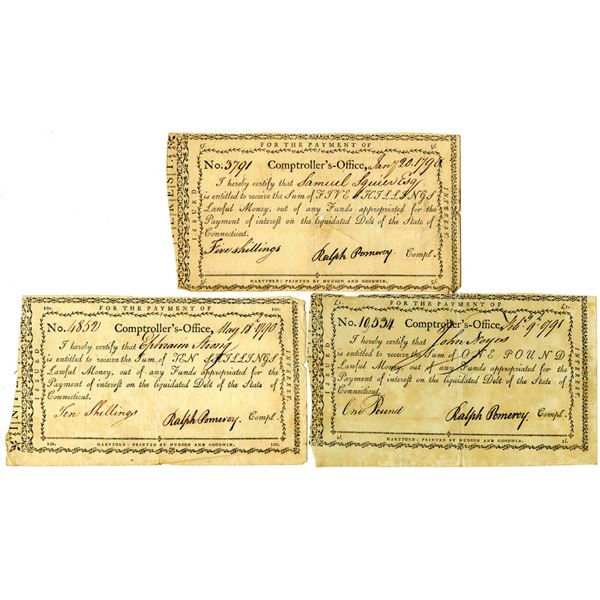 FOR THE PAYMENT OF
5/. 5/.
ISSUED
INTEREST.
No. 3791 Comptroller's-Office, Jany 20. 1790
I hereby certify that Samuel Squier Esq
is entitled to receive the Sum of FIVE SHILLINGS
Lawful Money, out of any Funds appropriated for the
Payment of interest on the liquidated Debt of the State of
Connecticut.
Five shillings Ralph Pomeroy. Compt.
5/. HARTFORD: PRINTED BY HUDSON AND GOODWIN. 5/.
10s. FOR THE PAYMENT OF 10s.
ISSUED
INTEREST.
No. 4852 Comptroller's-Office, May 1790
I hereby certify that Ephraim
is entitled to receive the Sum of TEN SHILLINGS
Lawful Money, out of any Funds appropriated for the
Payment of interest on the liquidated Debt of the State of
Connecticut.
Ten Shillings Ralph Pomeroy. Compt.
10s. HARTFORD: PRINTED BY HUDSON AND GOODWIN. 10s.
£1. FOR THE PAYMENT OF £1.
ISSUED
INTEREST.
No. 10,534 Comptroller's-Office, 9th 1791
I hereby certify that John Noyes
is entitled to receive the Sum of ONE POUND
Lawful Money, out of any Funds appropriated for the
Payment of interest on the liquidated Debt of the State of
Connecticut.
One Pound Ralph Pomeroy. Compt.
HARTFORD: PRINTED BY HUDSON AND GOODWIN.